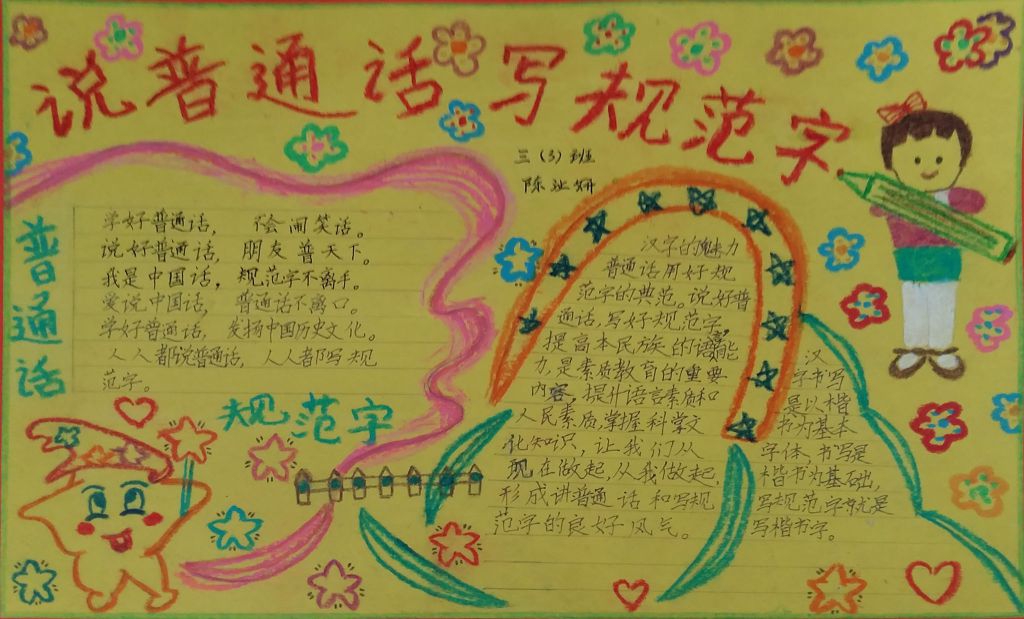 说普通话写规范字
三（3）班
普通话
学好普通话， 不会闹笑话。
说好普通话， 朋友普天下。
我是中国话， 规范字不离手。
爱说中国话， 普通话不离口。
学好普通话， 发扬中国历史文化。
人人都说普通话， 人人都写规
范字。
规范字
汉字的魅力
普通话用好规
范字的典范。说好普
通话，写好规范字，
提高本民族的语言能
力，是素质教育的重要
内容。提升语言素质和
人民素质，掌握科学文
化知识，让我们从
现在做起，从我做起，
形成讲普通话和写规
范字的良好风气。
汉
字书写
是以楷
书为基本
字体，书写是
楷书为基础，
写规范字就是
写楷书字。